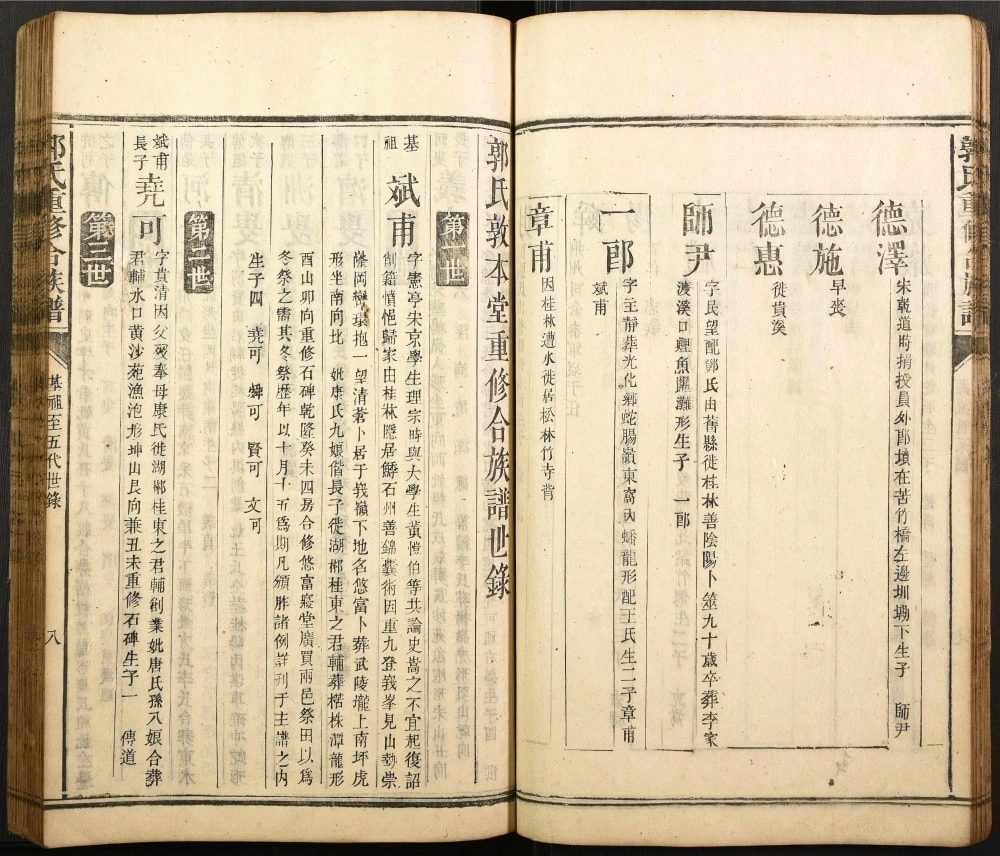 郭氏重修合族譜
德澤
宋乾道時捐授員外郎墳在苦竹橋左邊圳塝下生子 師尹
德施
早喪
德惠
徙貴溪
師尹
字民望配鄧氏由舊縣徙桂林善陰陽卜筮九十歲卒葬李家
渡溪口鯉魚躍灘形生子 一郎
一郎
字主靜葬光化鄉蛇腸嶺東窩內蟠龍形配王氏生二子章甫
斌甫
章甫
因桂林遭水徙居松林竹寺背
郭氏敦本堂重修合族譜世錄
第一世
基祖
斌甫
字憲亭宋京學生理宗時與大學生黃愷伯等共論史嵩之不宜起復詔
削籍憤悒歸家由桂林隱居鱘石州善錦囊術因重九登我峯見山勢崇
隆岡巒環抱一望清蒼卜居于我嶺下地名悠富卜葬武陵壠上南坪虎
形坐南向北 妣康氏九娘偕長子徙湖郴桂東之君輔葬楛株潭龍形
酉山卯向重修石碑乾隆癸未四房合修悠富寢堂廣買兩邑祭田以爲
冬祭之需其冬祭歷年以十月十五爲期凡頒胙諸例詳刊于主譜之內
生子四 堯可 舜可 賢可 文可
第二世
斌甫長子
堯可
字貫清因父歿奉母康氏徙湖郴桂東之君輔創業妣唐氏孫八娘合葬
君輔水口黃沙苑漁泡形坤山艮向兼丑未重修石碑生子一 傳道
第三世
郭氏重修合族譜
基祖至五代世錄
八